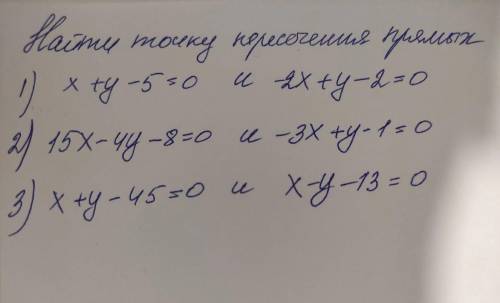 Найти точку пересечения прямых
1) x+y-5=0 и -2x+y-2=0
2) 15x-4y-8=0 и -3x+y-1=0
3) x+y-45=0 и x-y-13=0